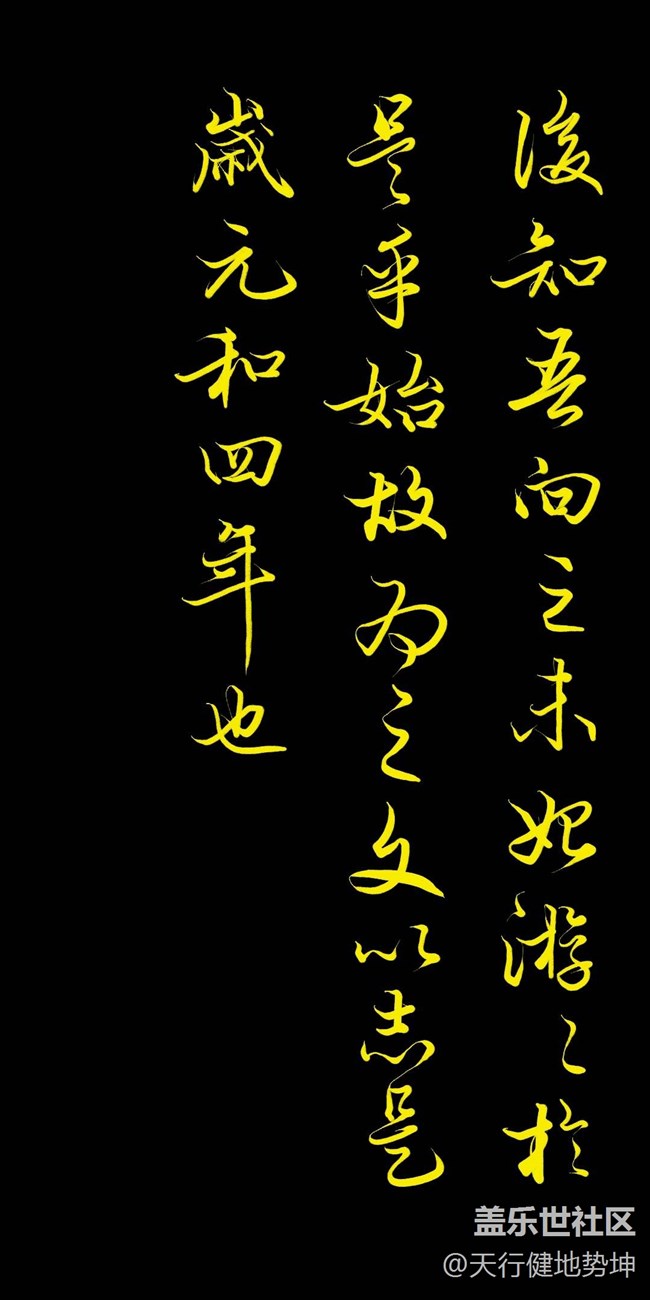 後知吾向之未始游游於
是乎始故為之文以志是
歲元和四年也
盖乐世社区
@天行健地势坤